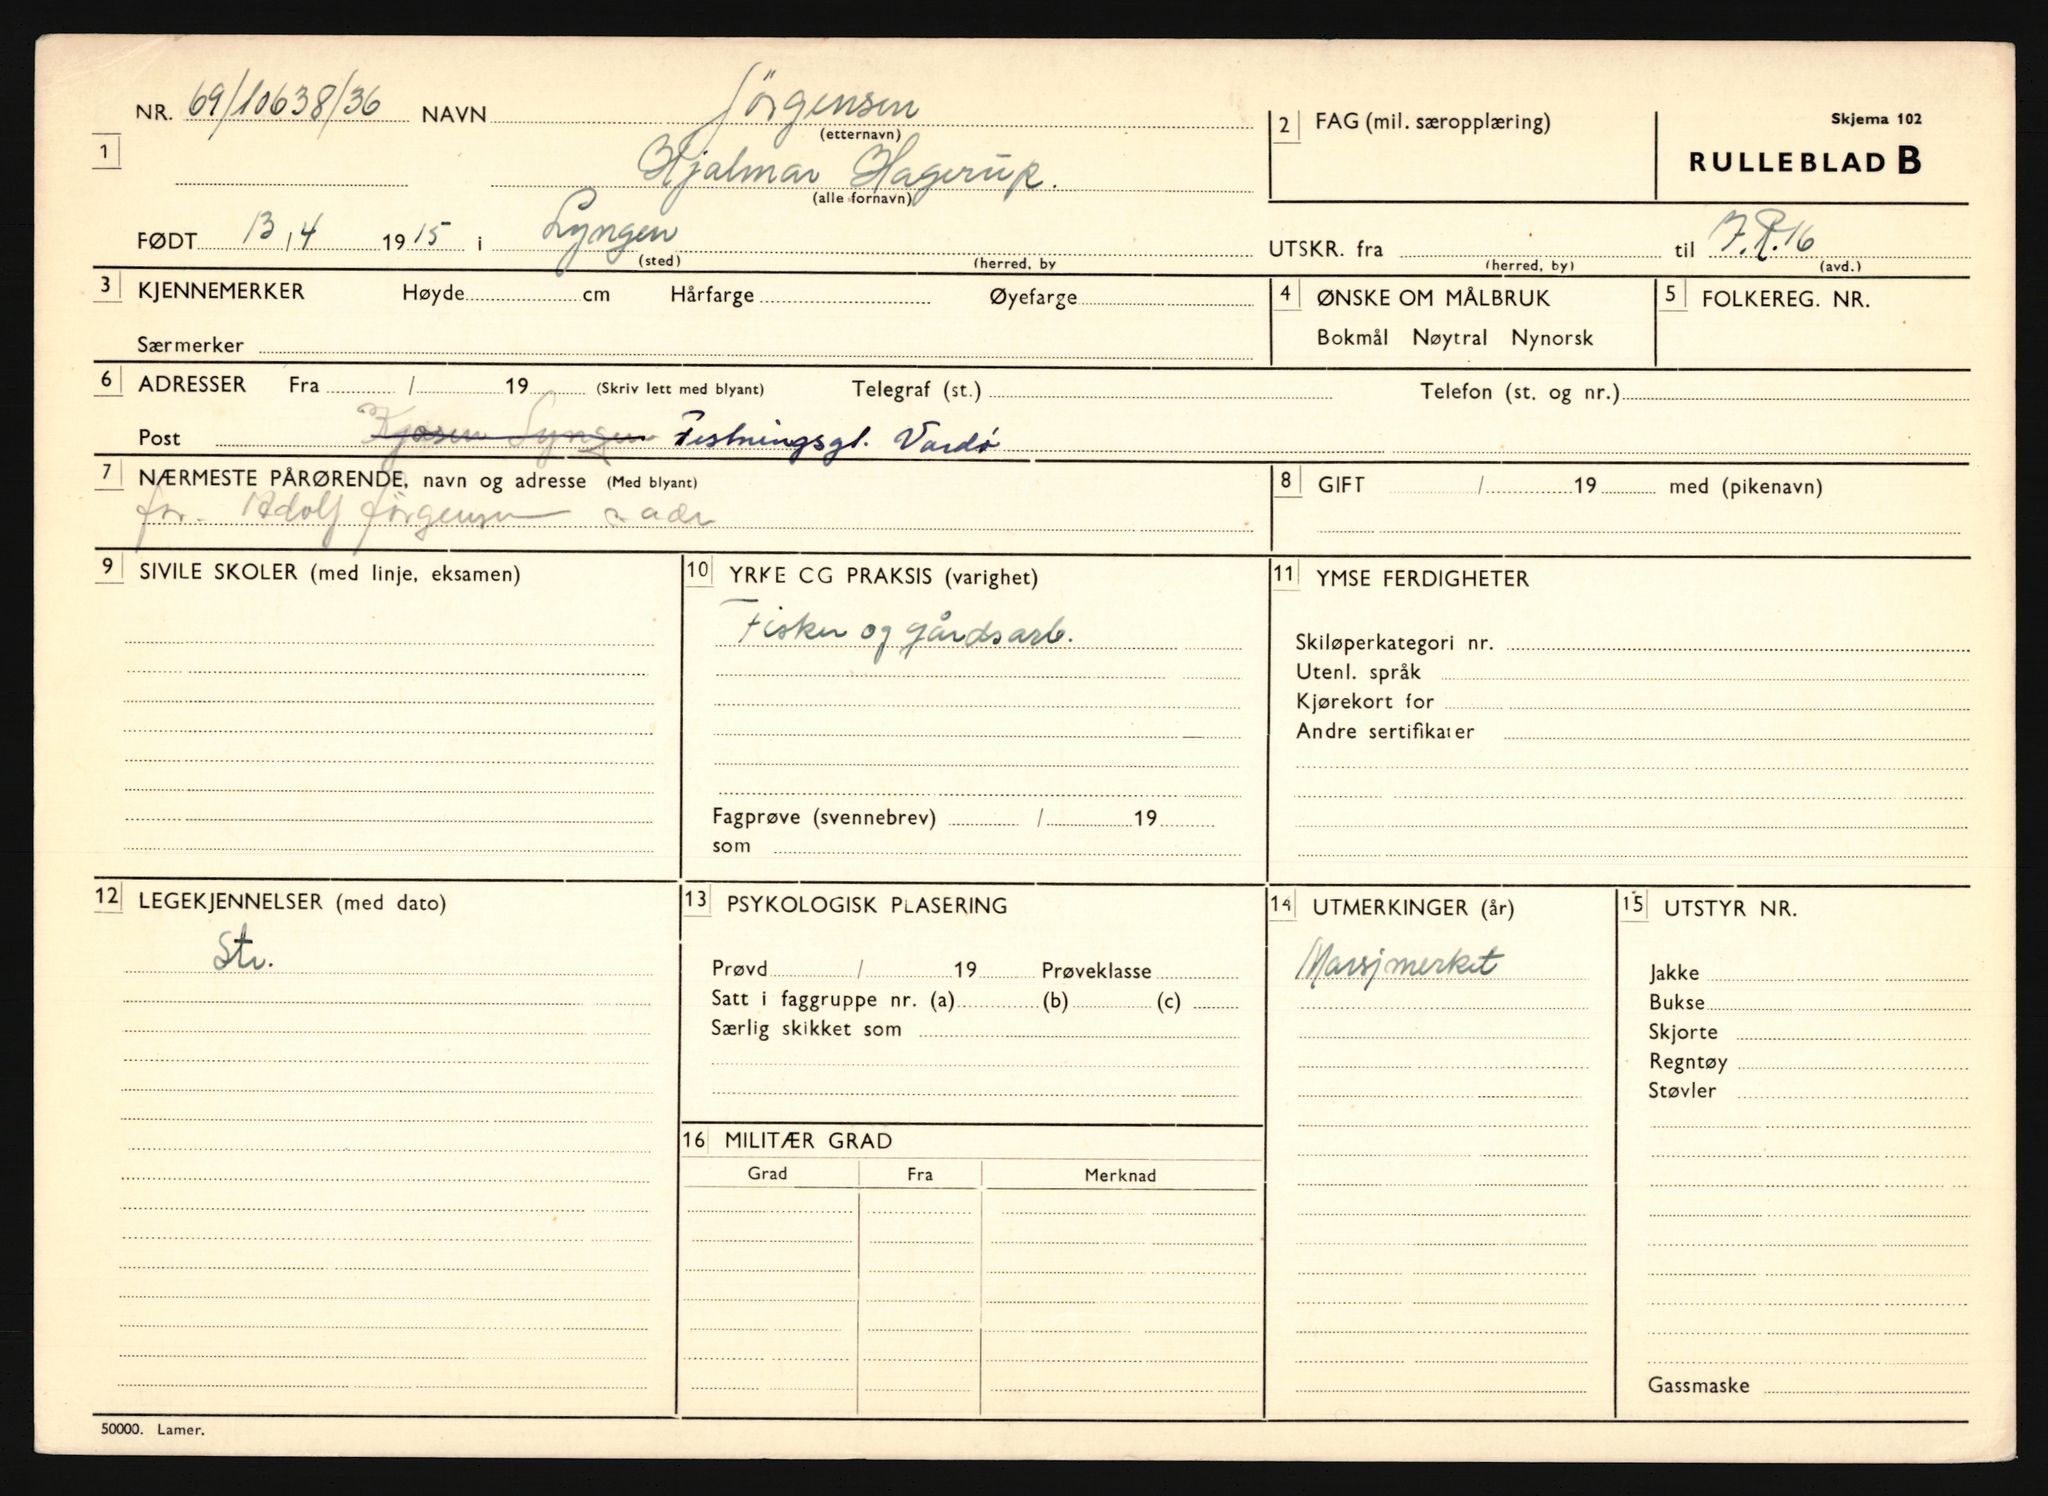 NR. 69/10638/36 NAVN Jörgensen
(etternavn)
1 Hjalmar Hagerup.
(alle fornavn)
2 FAG (mil. særopplæring)
Skjema 102
RULLEBLAD B
FØDT 13/4 1915 i Lyngen
(sted) (herred, by
UTSKR. fra til I.R.16
(herred, by) (avd.)
3 KJENNEMERKER Høyde cm Hårfarge Øyefarge
Særmerker
4 ØNSKE OM MÅLBRUK
Bokmål Nøytral Nynorsk
5 FOLKEREG. NR.
6 ADRESSER Fra / 19 (Skriv lett med blyant) Telegraf (st.) Telefon (st. og nr.)
Post Kjosen Lyngen Festningsgt. Vardø
7 NÆRMESTE PÅRØRENDE, navn og adresse (Med blyant)
far. Adolf Jørgensen s adr
8 GIFT / 19 med (pikenavn)
9 SIVILE SKOLER (med linje, eksamen)
10 YRKE CG PRAKSIS (varighet)
Fisker og gårdsarb.
Fagprøve (svennebrev) / 19
som
11 YMSE FERDIGHETER
Skiløperkategori nr.
Utenl. språk
Kjørekort for
Andre sertifikater
12 LEGEKJENNELSER (med dato)
Str.
13 PSYKOLOGISK PLASERING
Prøvd / 19 Prøveklasse
Satt i faggruppe nr. (a) (b) (c)
Særlig skikket som
14 UTMERKINGER (år)
Marsjmerket
15 UTSTYR NR.
Jakke
Bukse
Skjorte
Regntøy
Støvler
Gassmaske
16 MILITÆR GRAD
Grad Fra Merknad
50000. Lamer.